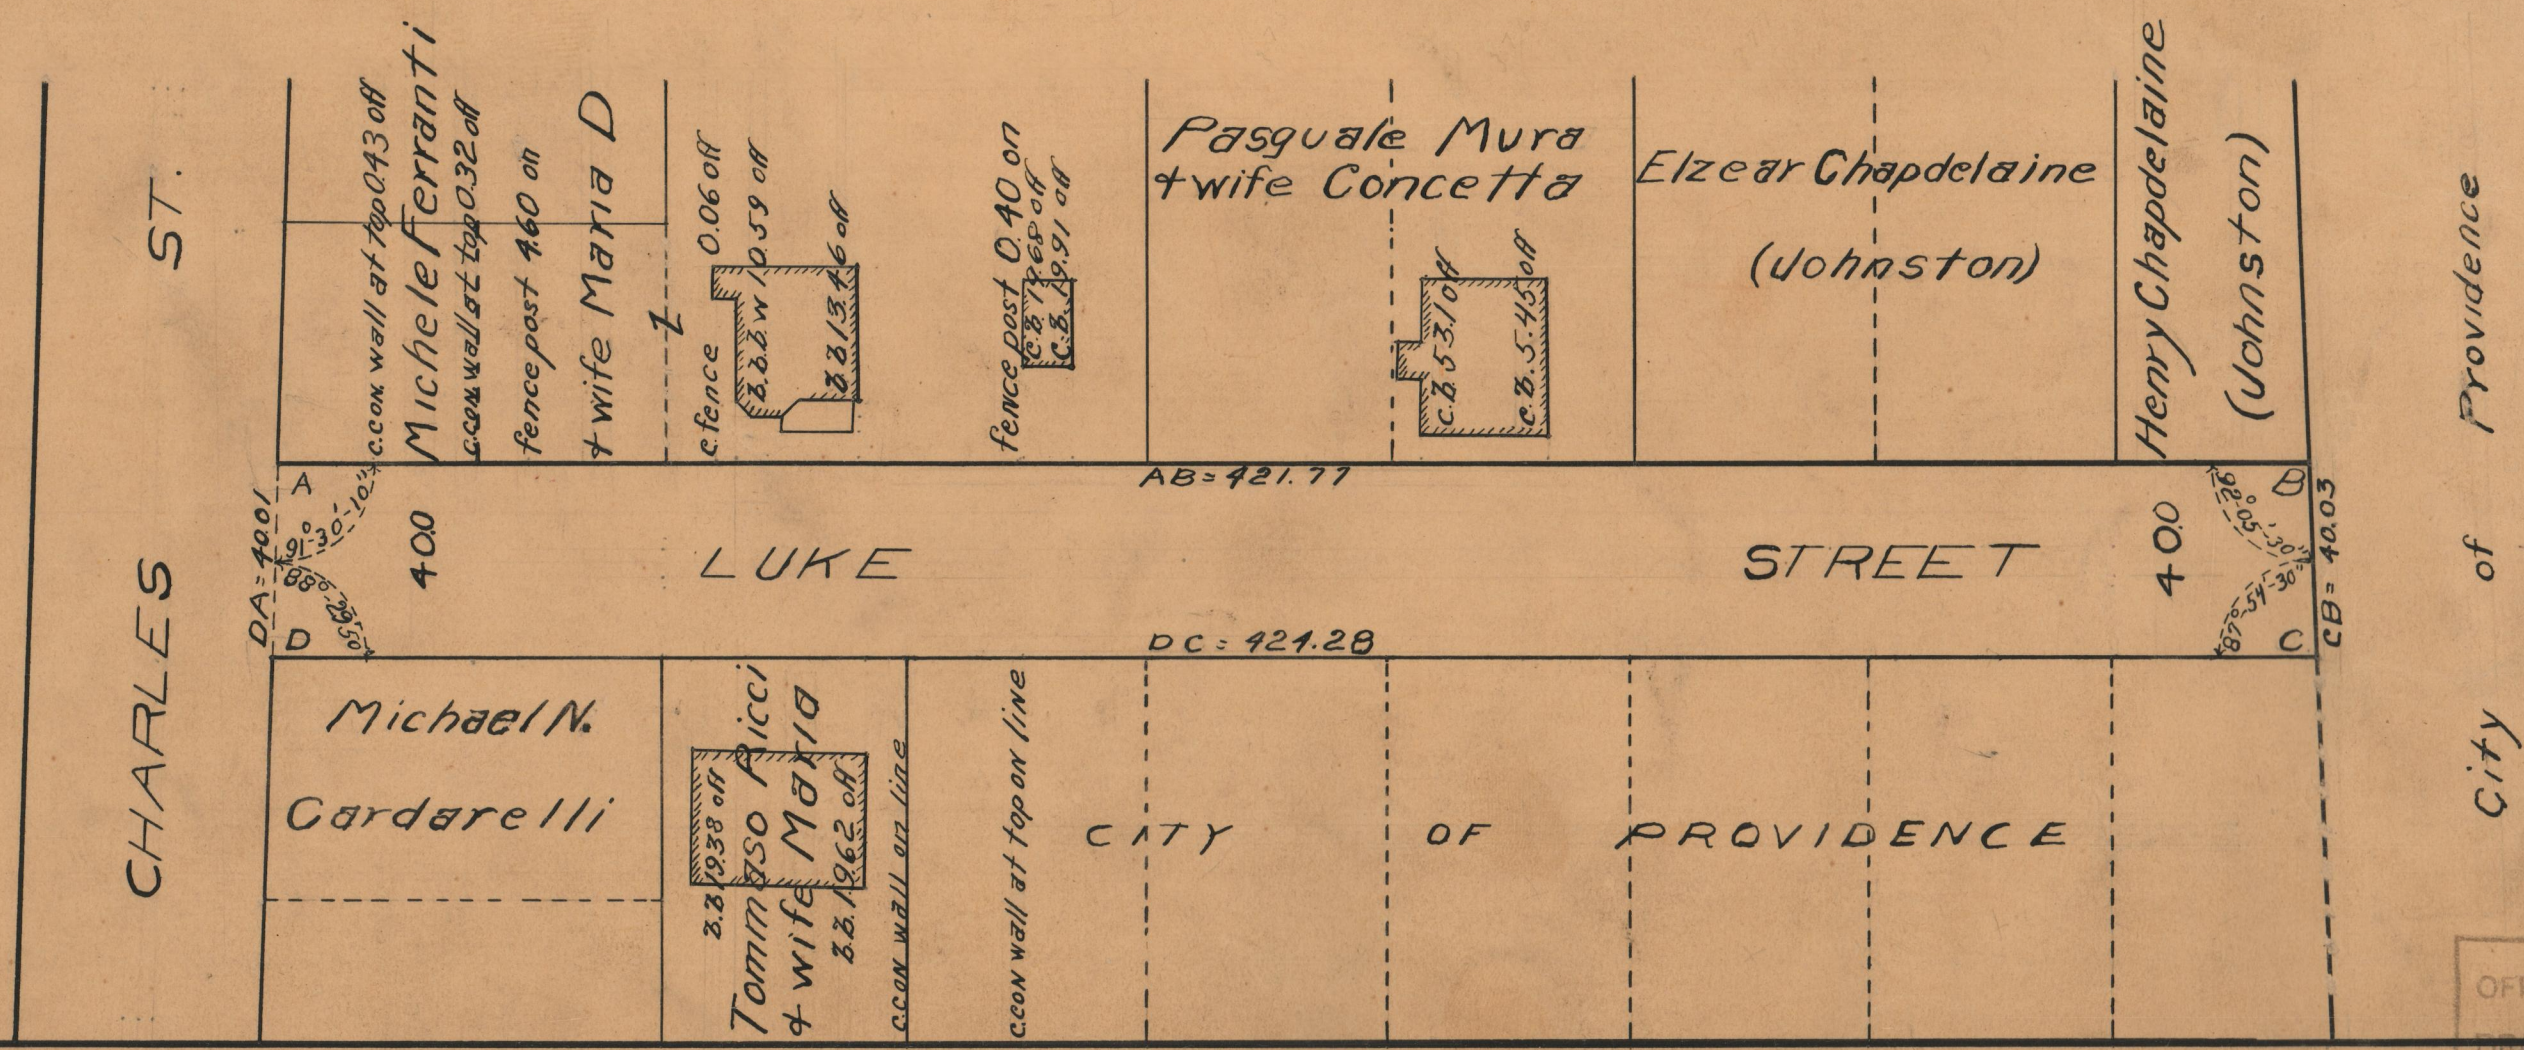 CHARLES ST.
c.con. wall at top 0.43 off
Michele Ferranti
c.con. wall at top 0.32 off
fence post 4.60 on
& wife Maria D
c. fence 0.06 off
B.B.B.W 10.59 off
B.B. 13.46 off
fence post 0.40 on
C.B. 19.68 off
C.B. 19.91 off
Pasquale Mura
& wife Concetta
C.B. 5.53.10 off
C.B. 5.45 off
Elzear Chapdelaine
(Johnston)
Henry Chapdelaine
(Johnston)
City of Providence
A
AB = 421.77
B
DA = 40.01
91°-30'-10"
88°-29'-50"
40.0
LUKE STREET
40.0
92°-05'-30"
87°-54'-30"
CB = 40.03
D
DC = 424.28
C
Michael N.
Cardarelli
B.B. 19.38 off
Tommaso Ricci
& wife Maria
B.B. 19.62 off
c.con wall on line
c.con wall at top on line
CITY OF PROVIDENCE